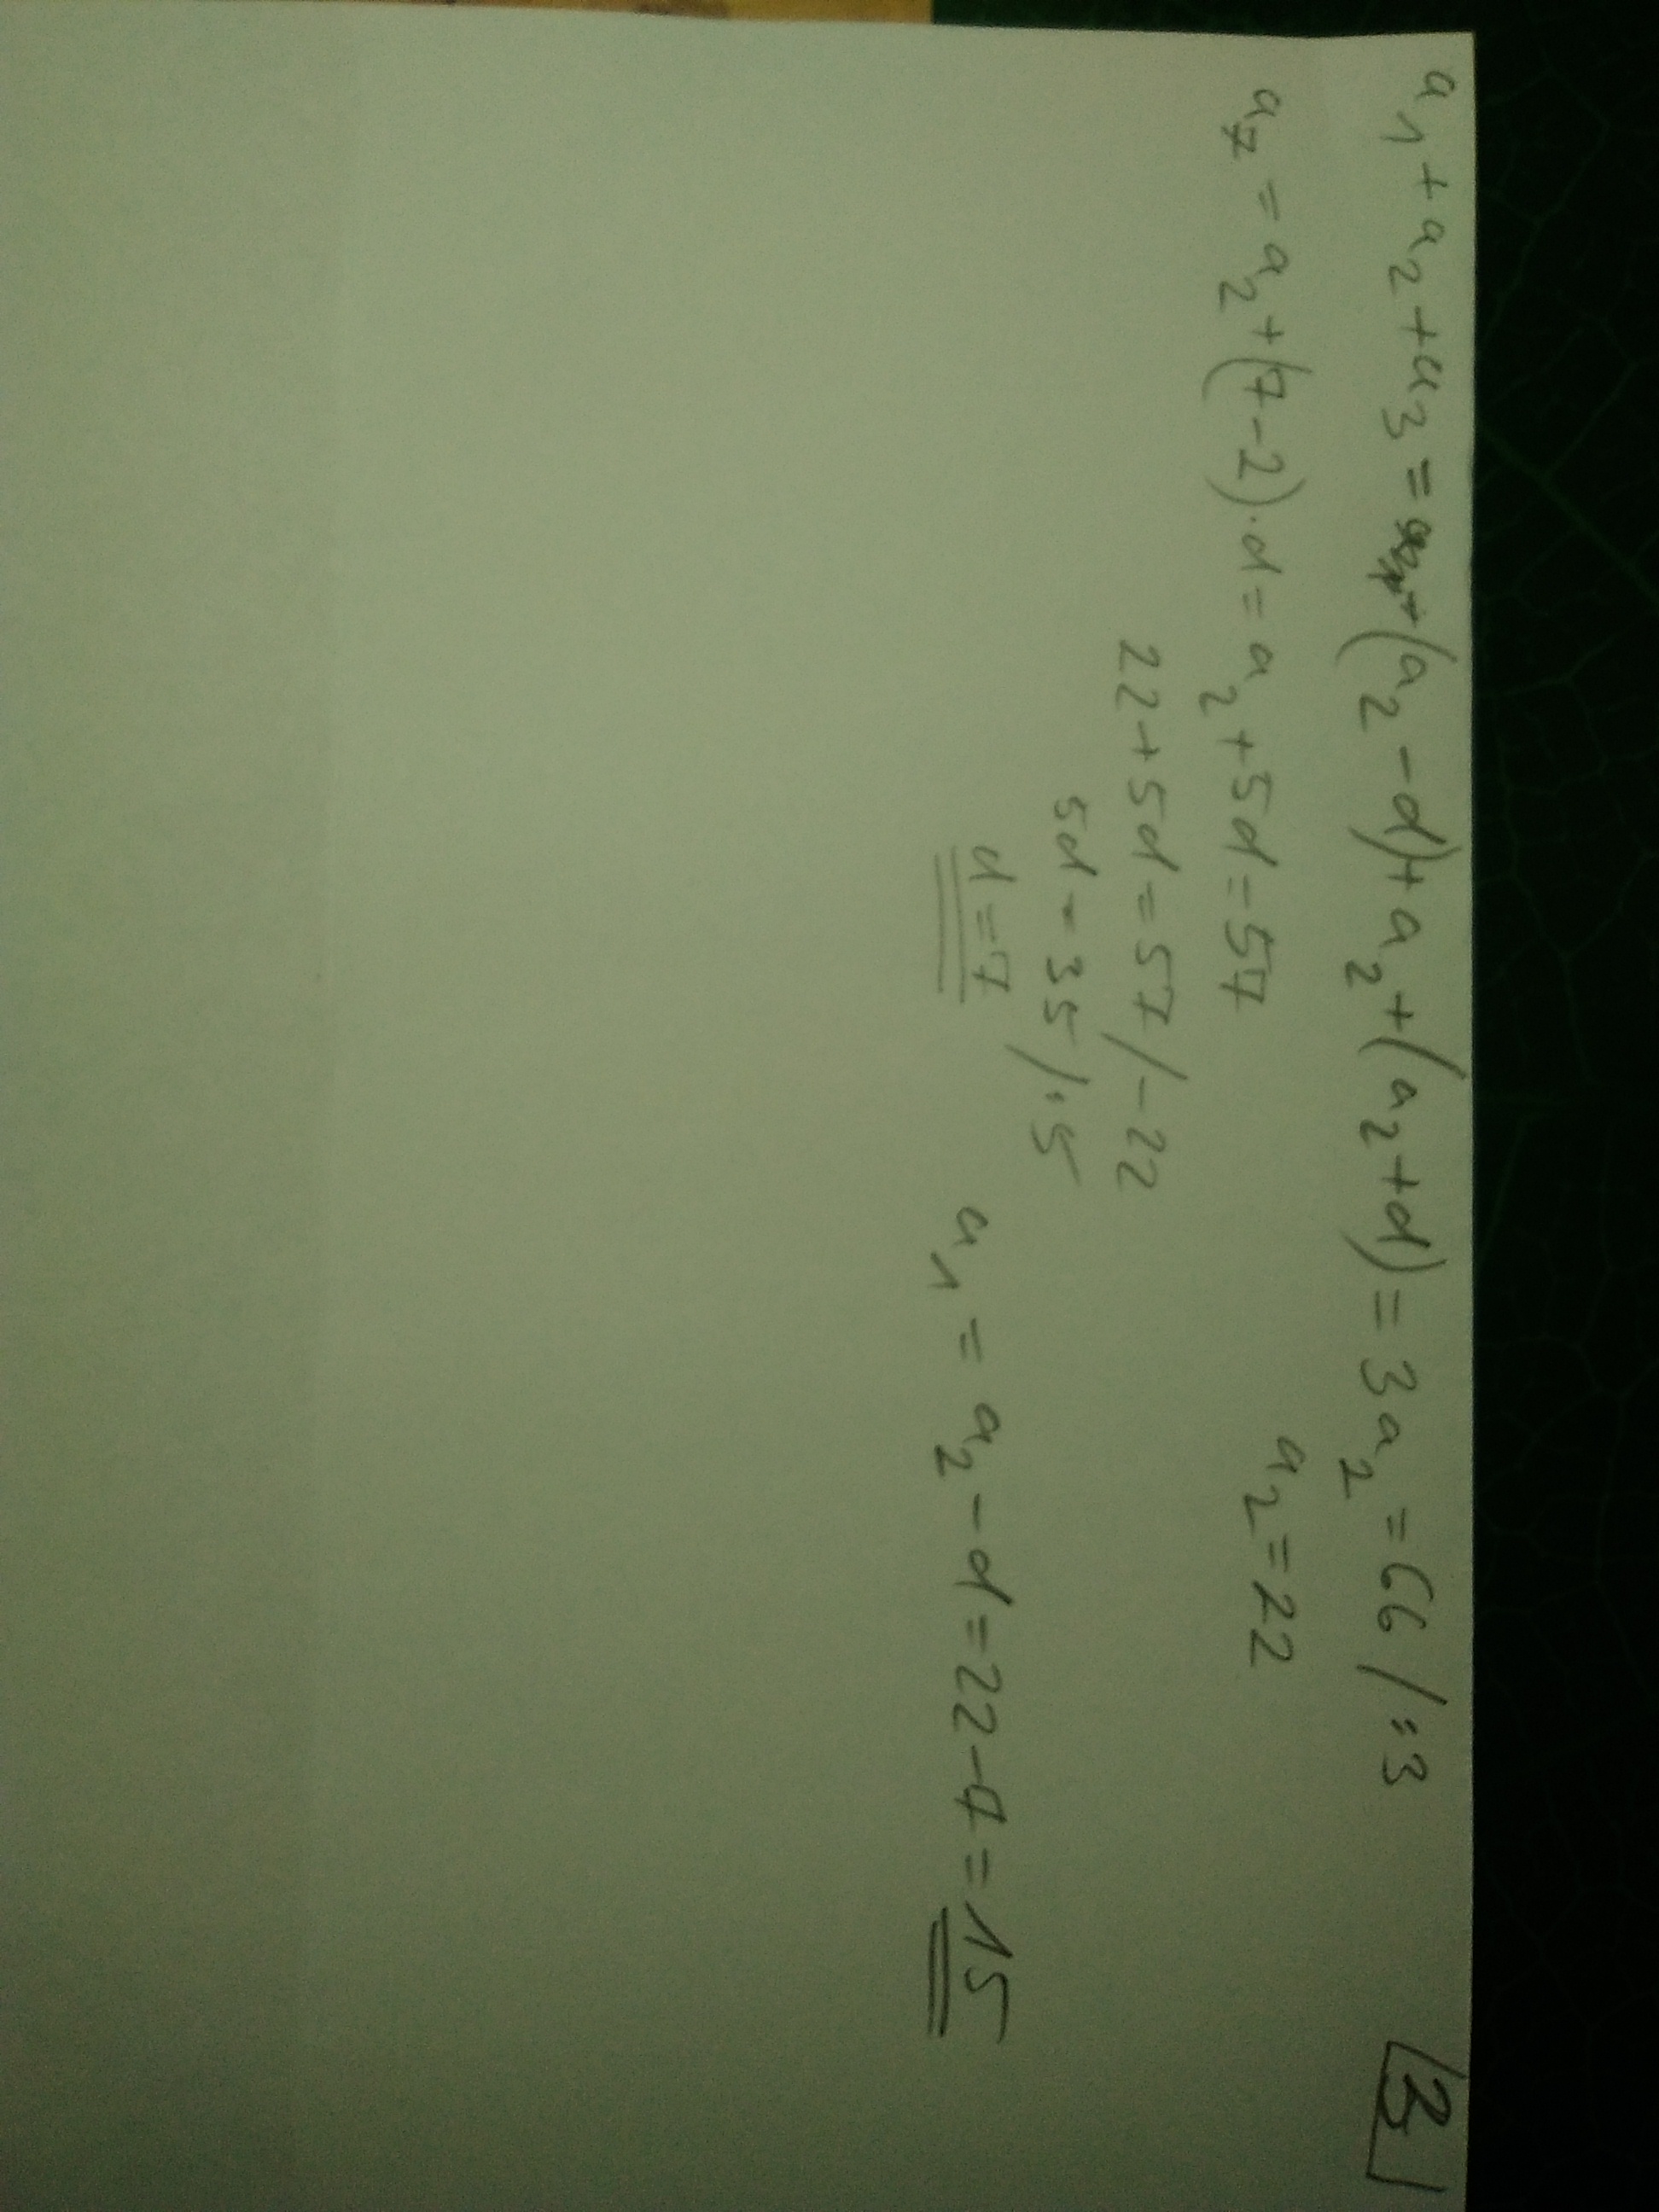 a₁+a₂+a₃=(a₂-d)+a₂+(a₂+d)=3a₂=66/:3
3
a₂=22
a₇=a₂+(7-2)·d=a₂+5d=57
22+5d=57/-22
5d=35/:5
d=7
a₁=a₂-d=22-7=15